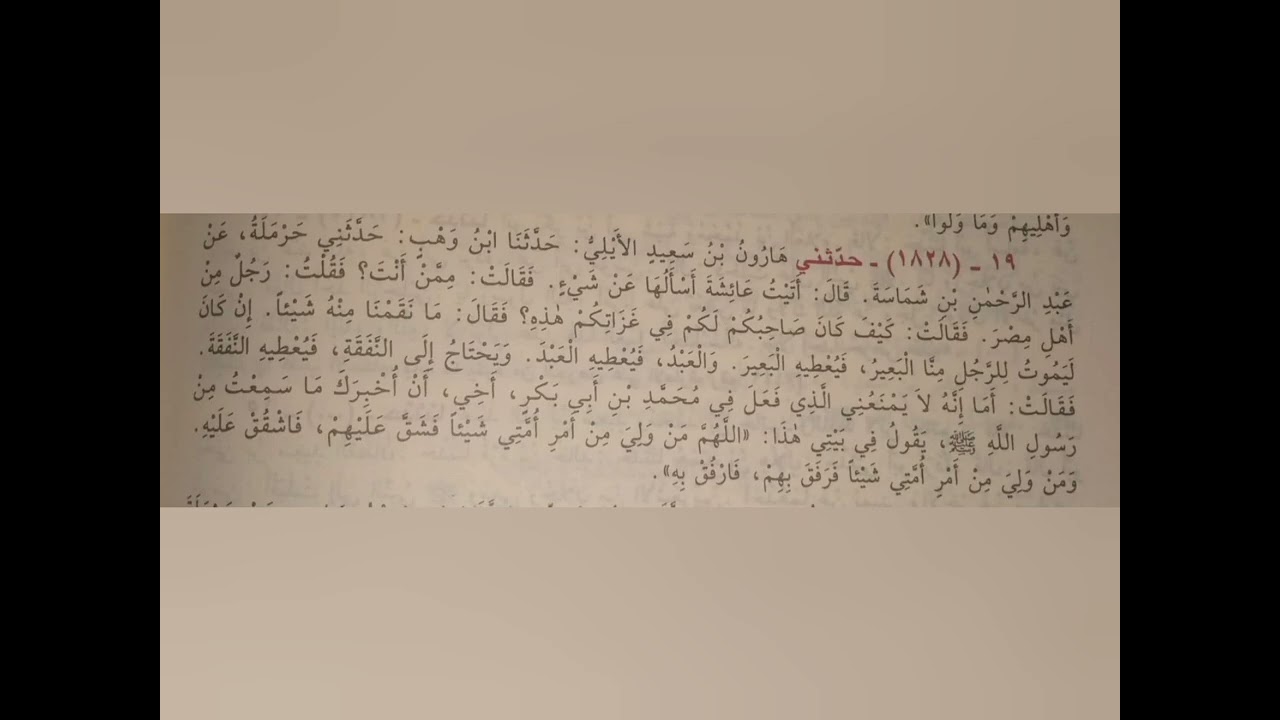 وَأَهْلِيهِمْ وَمَا وَلُوا».
١٩ ـ (١٨٢٨) ـ حدّثني هَارُونُ بْنُ سَعِيدٍ الأَيْلِيُّ: حَدَّثَنَا ابْنُ وَهْبٍ: حَدَّثَنِي حَرْمَلَةُ، عَنْ
عَبْدِ الرَّحْمٰنِ بْنِ شَمَاسَةَ. قَالَ: أَتَيْتُ عَائِشَةَ أَسْأَلُهَا عَنْ شَيْءٍ. فَقَالَتْ: مِمَّنْ أَنْتَ؟ فَقُلْتُ: رَجُلٌ مِنْ
أَهْلِ مِصْرَ. فَقَالَتْ: كَيْفَ كَانَ صَاحِبُكُمْ لَكُمْ فِي غَزَاتِكُمْ هٰذِهِ؟ فَقَالَ: مَا نَقَمْنَا مِنْهُ شَيْئاً. إِنْ كَانَ
لَيَمُوتُ لِلرَّجُلِ مِنَّا الْبَعِيرُ، فَيُعْطِيهِ الْبَعِيرَ. وَالْعَبْدُ، فَيُعْطِيهِ الْعَبْدَ. وَيَحْتَاجُ إِلَى النَّفَقَةِ، فَيُعْطِيهِ النَّفَقَةَ.
فَقَالَتْ: أَمَا إِنَّهُ لاَ يَمْنَعُنِي الَّذِي فَعَلَ فِي مُحَمَّدِ بْنِ أَبِي بَكْرٍ، أَخِي، أَنْ أُخْبِرَكَ مَا سَمِعْتُ مِنْ
رَسُولِ اللَّهِ ﷺ، يَقُولُ فِي بَيْتِي هٰذَا: «اللَّهُمَّ مَنْ وَلِيَ مِنْ أَمْرِ أُمَّتِي شَيْئاً فَشَقَّ عَلَيْهِمْ، فَاشْقُقْ عَلَيْهِ.
وَمَنْ وَلِيَ مِنْ أَمْرِ أُمَّتِي شَيْئاً فَرَفَقَ بِهِمْ، فَارْفُقْ بِهِ».